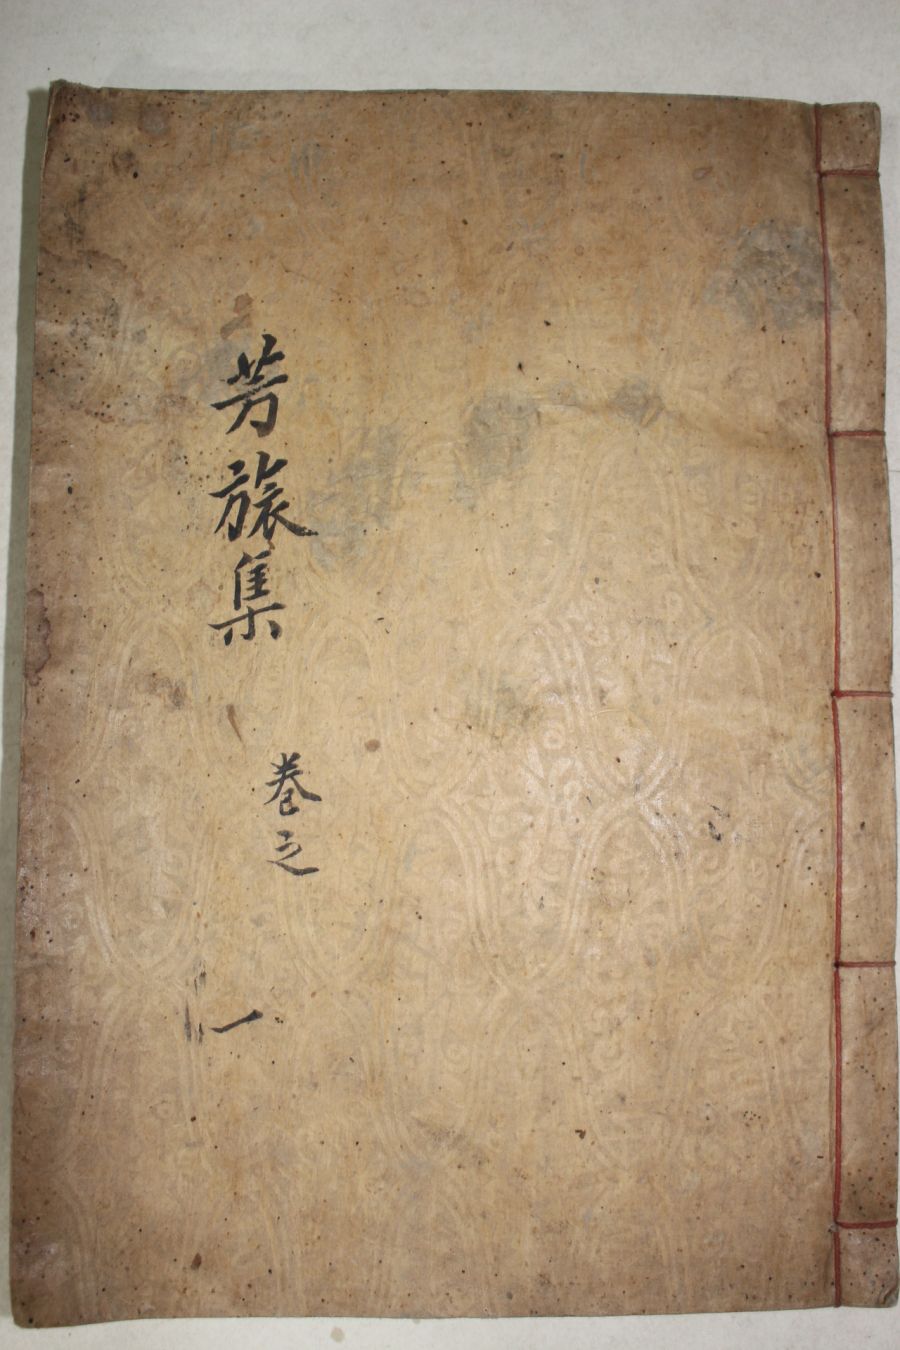 芳旅集
卷之
一